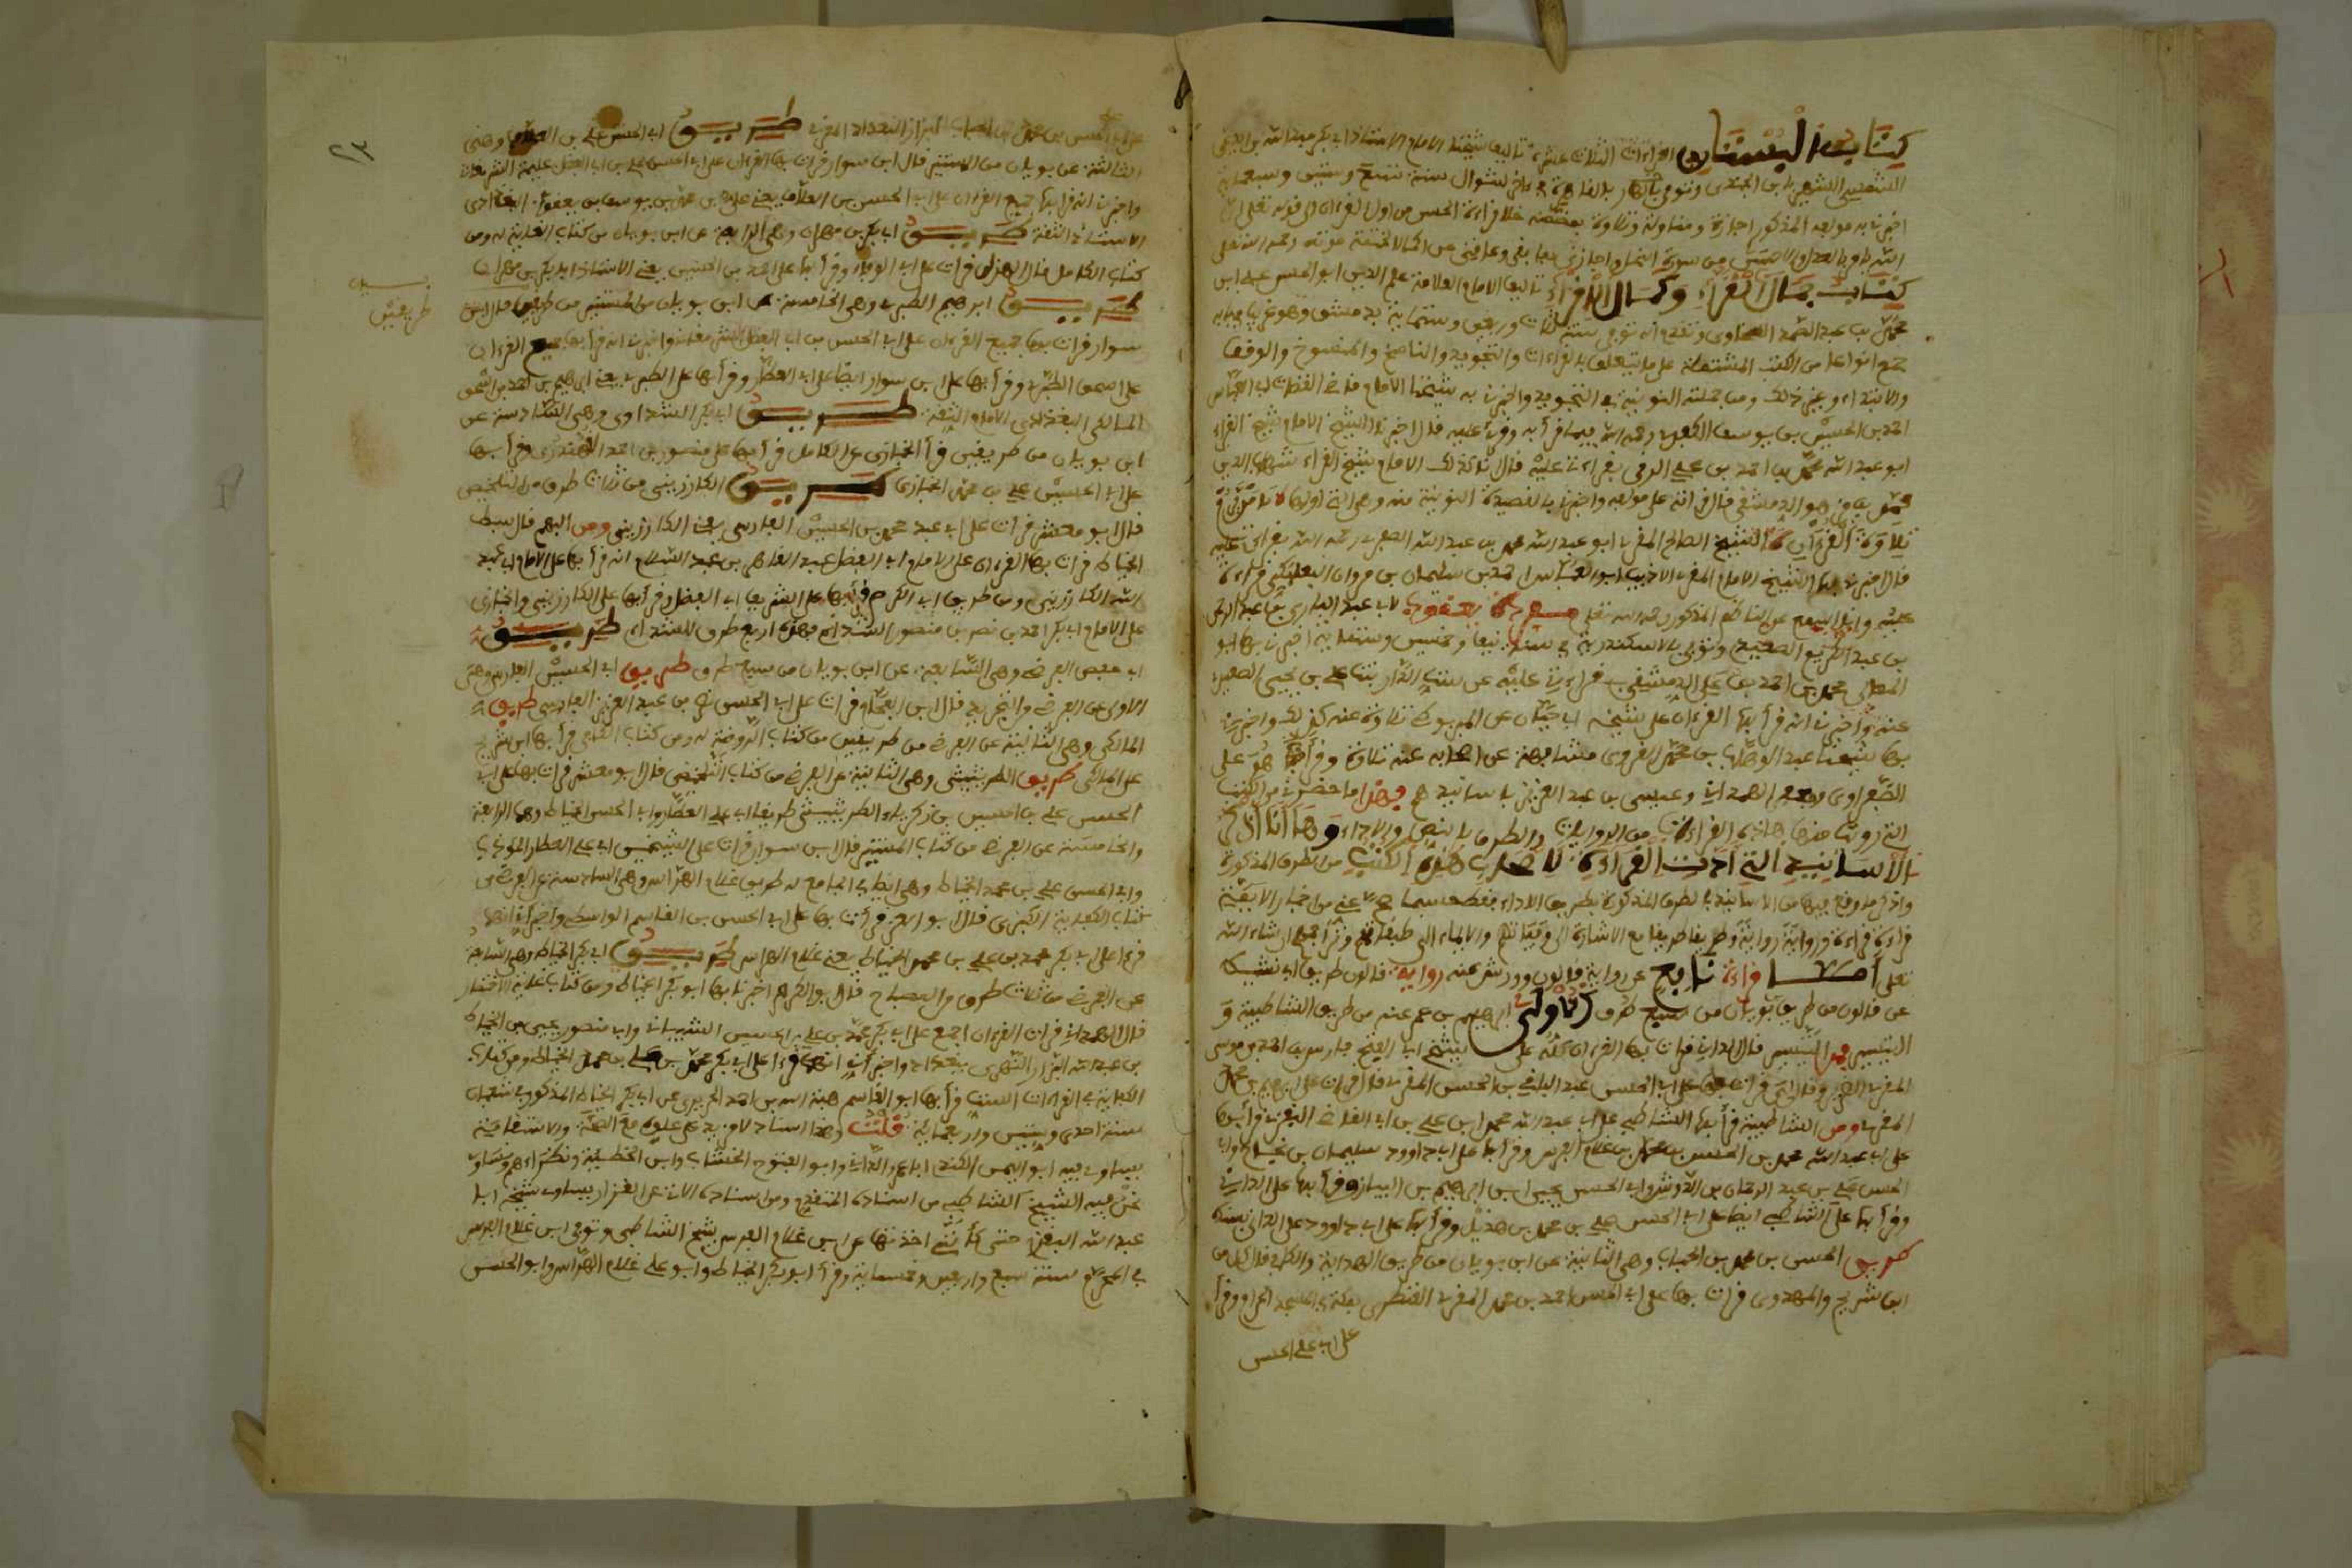 كتاب البستان في القراءات الثلاث عشرة تاليف شيخنا الامام الاستاذ ابي بكر عبد الله بن ايدغدي
الشمسي الشهير بابن الجندي وتوفي بالقاهرة في اخر شوال سنة تسع وستين وسبعماية
اخبرنا به مولفه المذكور اجازة ومناولة وتلاوة بمضمنه خلا قراءة الحسن من اول القرءان الى قوله تعلى ان
الله يامر بالعدل والاحسان من سورة النحل واجازني بما بقي وعاقني عن اكمال الختمة موته رحمه الله تعلى
كتاب جمال القراء وكمال الاقراء تاليف الامام العلامة علم الدين ابو الحسن علي ابن
محمد بن عبد الصمد السخاوي وتقدم انه توفي سنة ثلاث واربعين وستماية بدمشق وهو غريب في بابه
جمع انواعا من الكتب المشتملة على ما يتعلق بالقراءات والتجويد والناسخ والمنسوخ والوقف
والابتداء وغير ذلك ومن جملته النونية في التجويد واخبرنا به شيخنا الامام قاضي القضاة ابو العباس
احمد بن الحسين بن يوسف الكفري رحمه الله فيما قرأ به وقرئ عليه قال اخبرنا الشيخ الامام شيخ القراء
ابو عبد الله محمد بن احمد بن علي الرقي بقراءته عليه قال كذلك الامام شيخ القراء شهاب الدين
محمد بن مزهر الدمشقي قال قراته على مولفه واخبرنا بالقصيدة النونية منه وهي التي اولها يا من يروم
تلاوة القرءان الشيخ الصالح المقري ابو عبد الله محمد بن عبد الله الصفوي رحمه الله بقراءتي عليه
قال اخبرنا بها الشيخ الامام المقري الاديب ابو العباس احمد بن سليمان بن مروان البعلبكي قراءة
عليه وانا اسمع عن الناظم المذكور رحمه الله تعلى مفردة يعقوب لابي عبد الباري بن عبد الرحمن
بن عبد الكريم الصعيدي وتوفي بالاسكندرية في سنة نيف وخمسين وستماية اخبرنا بها ابو
المعالي محمد بن احمد بن علي الدمشقي بقراءتي عليه عن ست الدار بنت علي بن يحيى الصعيدي
عنه واخبرنا انه قرأ بها القرءان على شيخه ابي حيان عن المريوطي تلاوة عنه كذلك واخبرنا
بها شيخنا عبد الوهاب بن محمد القروي مشافهة عن اصحابه عنه تلاوة وقرأ بها هو على
الصفراوي وجعفر الهمداني وعيسى بن عبد العزيز باسانيدهم فهذا ما حضرني من الكتب
التي رويت منها هذه القراءات من الروايات والطرق بالنص والاداء وها انا اذكر
الاسانيد التي ادت القراءة لاصحاب هذه الكتب من الطرق المذكورة
واذكر ما وقع فيها من الاسانيد بالطرق المذكورة بطريق الاداء فقط حسبما صح عني من اخبار الايمة
قراءة قراءة ورواية رواية وطريقا طريقا مع الاشارة الى وفياتهم والايماء الى طبقاتهم وتراجمهم ان شاء الله
تعلى اما قراءة نافع من رواية قالون وورش عنه رواية قالون طريق ابي نشيط
عن قالون من طريق بويان من سبع طرق الاولى ابراهيم بن عمر عنه من طريق الشاطبية و
التيسير فمن التيسير قال الداني قرات بها القرءان كله على شيخي ابي الفتح فارس بن احمد بن موسى
المقري الضرير وقال لي قرات بها على ابي الحسن عبد الباقي بن الحسن المقري قال قرات على ابراهيم بن عمر
المقري ومن الشاطبية قرأ بها الشاطبي على ابي عبد الله محمد ابن علي بن ابي العاص النفزي وقرأ بها
على ابي عبد الله محمد بن الحسن بن محمد بن غلام الفرس وقرأ بها على ابي داوود سليمان بن نجاح وابي
الحسن علي بن عبد الرحمان بن الدوش وابي الحسن يحيى ابن ابراهيم بن البياز وقرأ بها على الداني
وقرأ بها على الشاطبي ايضا على ابي الحسن علي بن محمد بن هذيل وقرأ بها على ابي داوود على الداني بسنده
طريق الحسن بن محمد بن الحباب وهي الثانية عن ابن بويان من طريق الهداية والكافي قال كل من
ابن شريح والمهدوي قرات بها على ابي الحسن احمد بن محمد المقري القنطري بمكة في المسجد الحرام وقرأ
على ابي علي الحسن
علي ابي الحسن بن محمد بن الحباب البزاز البغدادي المقري طريق ابي الحسن علي بن العلاف وهي
الثالثة عن بويان من المستنير قال ابن سوار قرات بها القرءان على ابي الحسن علي بن ابي الفضل
واخبرنا انه قرا بها جميع القرءان على ابي الحسن بن العلاف يعني علي بن محمد بن يوسف بن يعقوب البغدادي
الاستاذ الثقة طريق ابي بكر بن مهران وهي الرابعة عن ابن بويان من كتاب الغاية له ومن
كتاب الكامل قال الهذلي قرات على ابي الوفاء وقرأ بها على احمد بن الحسين يعني الاستاذ ابا بكر بن مهران
طريق ابرهيم الطبري وهي الخامسة عن ابن بويان من المستنير من طريقين قال ابن
سوار قرات بها جميع القرءان على ابي الحسن بن ابي الفضل الشرمقاني واخبرنا انه قرأ بها جميع القرءان
على ابي اسحق الطبري وقرأ بها على ابن سوار ايضا على ابي علي العطار وقرأ بها على الطبري يعني ابراهيم بن احمد بن اسحق
المالكي البغدادي الامام الثقة طريق ابي بكر الشذاوي وهي السادسة عن
ابن بويان من طريقين قرأ الخبازي عن الكامل قرأ بها على منصور بن احمد القهندزي وقرأ بها
على ابي الحسين علي بن محمد الخبازي طريق الكارزيني من ثلاث طرق من التلخيص
قال ابو معشر قرات على ابي عبد محمد بن الحسين الفارسي يعني الكارزيني ومن المبهج قال سبط
الخياط قرات بها القرءان على الامام ابي الفضل عبد القاهر بن عبد السلام انه قرأ بها على الامام ابي عبد
الله الكارزيني ومن طريق ابي الكرم قرأ بها على الشريف ابي الفضل وقرأ بها على الكارزيني والخبازي
على الامام ابي بكر احمد بن نصر بن منصور الشذائي فهذه اربع طرق للشذاي طريق
ابي بعض الفرضي وهي السابعة عن ابن بويان من سبع طرق طريق ابي الحسين الفارسي وهي
الاولى عن الفرضي والتجريد قال ابن الفحام قرات على ابي الحسن نصر بن عبد العزيز الفارسي طريق
المالكي وهي الثانية عن الفرضي من طريقين من كتاب الروضة له ومن كتاب الكافي قرأ بها ابن شريح
على المالكي طريق الطريثيثي وهي الثالثة عن الفرضي من كتاب التلخيص قال ابو معشر قرات بها على ابي
الحسن علي بن الحسين بن زكرياء الطريثيثي طريقا ابي علي العطار وابي الحسن الخياط وهما الرابعة
والخامسة عن الفرضي من كتاب المستنير قال ابن سوار قرات على الشيخين ابي علي العطار المؤدب
وابي الحسن علي بن محمد الخياط وهي ايضا في الجامع له طريق غلام الهراس وهي السادسة عن الفرضي من
كتاب الكفاية الكبرى قال ابو العز قرأت بها على ابي الحسن بن القاسم الواسطي واخبرني انه
قرأ على ابي بكر محمد بن علي بن محمد الخياط يعني غلام الهراس طريق ابي بكر الخياط وهي السابعة
عن الفرضي من ثلاث طرق من المصباح قال ابو الكرم اخبرنا بها ابو بكر الخياط ومن كتاب غاية الاختصار
قال الهمداني قرات القرءان اجمع على ابي بكر محمد بن علي بن الحسين الشيباني وابي منصور يحيى بن الخياط
بن عبد الله البزار النهري ببغداد واخبراني انهما قرءا على ابي بكر محمد بن علي بن محمد الخياط ومن كتاب
الكفاية في القراءات الست قرأ بها ابو القاسم هبة الله بن احمد الحريري عن ابي بكر الخياط المذكور في شعبان
سنة احدى وستين واربعماية قلت وهذا اسناد لا مزيد على علوه مع الصحة والاستقامة
يساوي فيه ابو اليمن الكندي ابا عمرو الداني وابو الفتوح الخشاب وابن الحطيئة ونظراءهم ونساوي
نحن فيه الشيخ الشاطبي من اسناده المتقدم ومن اسناده الاتي عن القزاز يساوي شيخه ابا
عبد الله النفزي حتى كأنني اخذتها عن ابن غلام الفرس شيخ الشاطبي وتوفي ابن غلام الفرس
في المحرم سنة سبع واربعين وخمسماية وقرأ ابو بكر الخياط وابو علي غلام الهراس وابو الحسن
طريقين